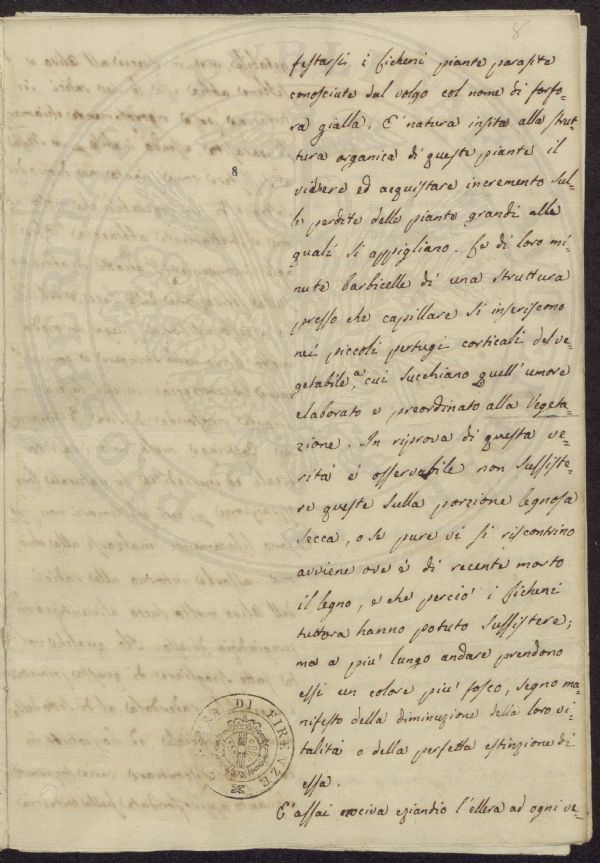 8
8
festarsi i licheni piante parasite
conosciute dal volgo col nome di forfo-
ra gialla. E' natura insita alla strut-
tura organica di queste piante il
vivere ed acquistare incremento sul-
le perdite delle piante grandi alle
quali si appigliano. Le di loro mi-
nute barbicelle di una struttura
presso che capillare si inseriscono
nei piccoli pertugi corticali del ve-
getabile, a cui succhiano quell'umore
elaborato e preordinato alla Vegeta-
zione. In riprova di questa ve-
rità è osservabile non sussiste-
re queste sulla porzione legnosa
secca, o se pure vi si riscontrino
avviene ove è di recente morto
il legno, e che perciò i licheni
tuttora hanno potuto sussistere;
ma a più lungo andare prendono
essi un colore più fosco, segno ma-
nifesto della diminuzione della loro vi-
talità o della perfetta estinzione di
essa.
E' assai nociva eziandio l'ellera ad ogni ve-
DI FIRENZE